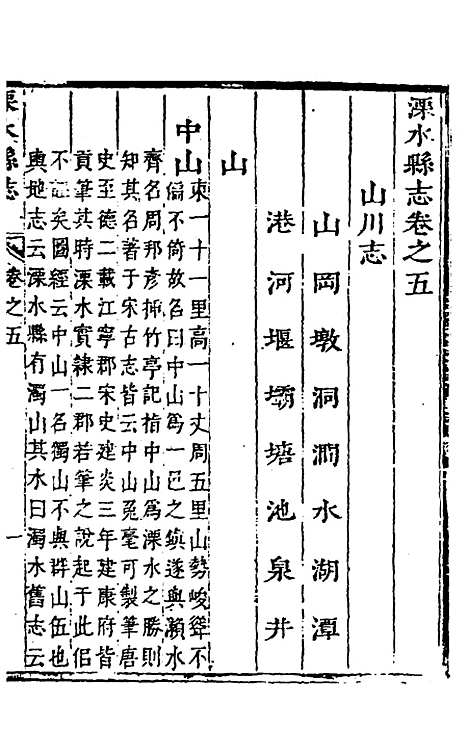 溧水縣志卷之五
山川志
山岡墩洞澗水湖潭
港河堰壩塘池泉井
山
中山東一十一里高一十丈周五里山勢峻聳不
偏不倚故名曰中山爲一邑之鎮遂與瀨水
齊名周邦彥揷竹亭記指中山爲溧水之勝則
知其名著于宋古志皆云中山兔毫可製筆唐
史至德二載江寧郡宋史建炎三年建康府皆
貢筆其時溧水實隸二郡若筆之說起于此但
不證矣圖經云中山一名獨山不與群山伍也
輿地志云溧水縣有濁山其水曰濁水舊志云
溧水縣志
卷之五
一